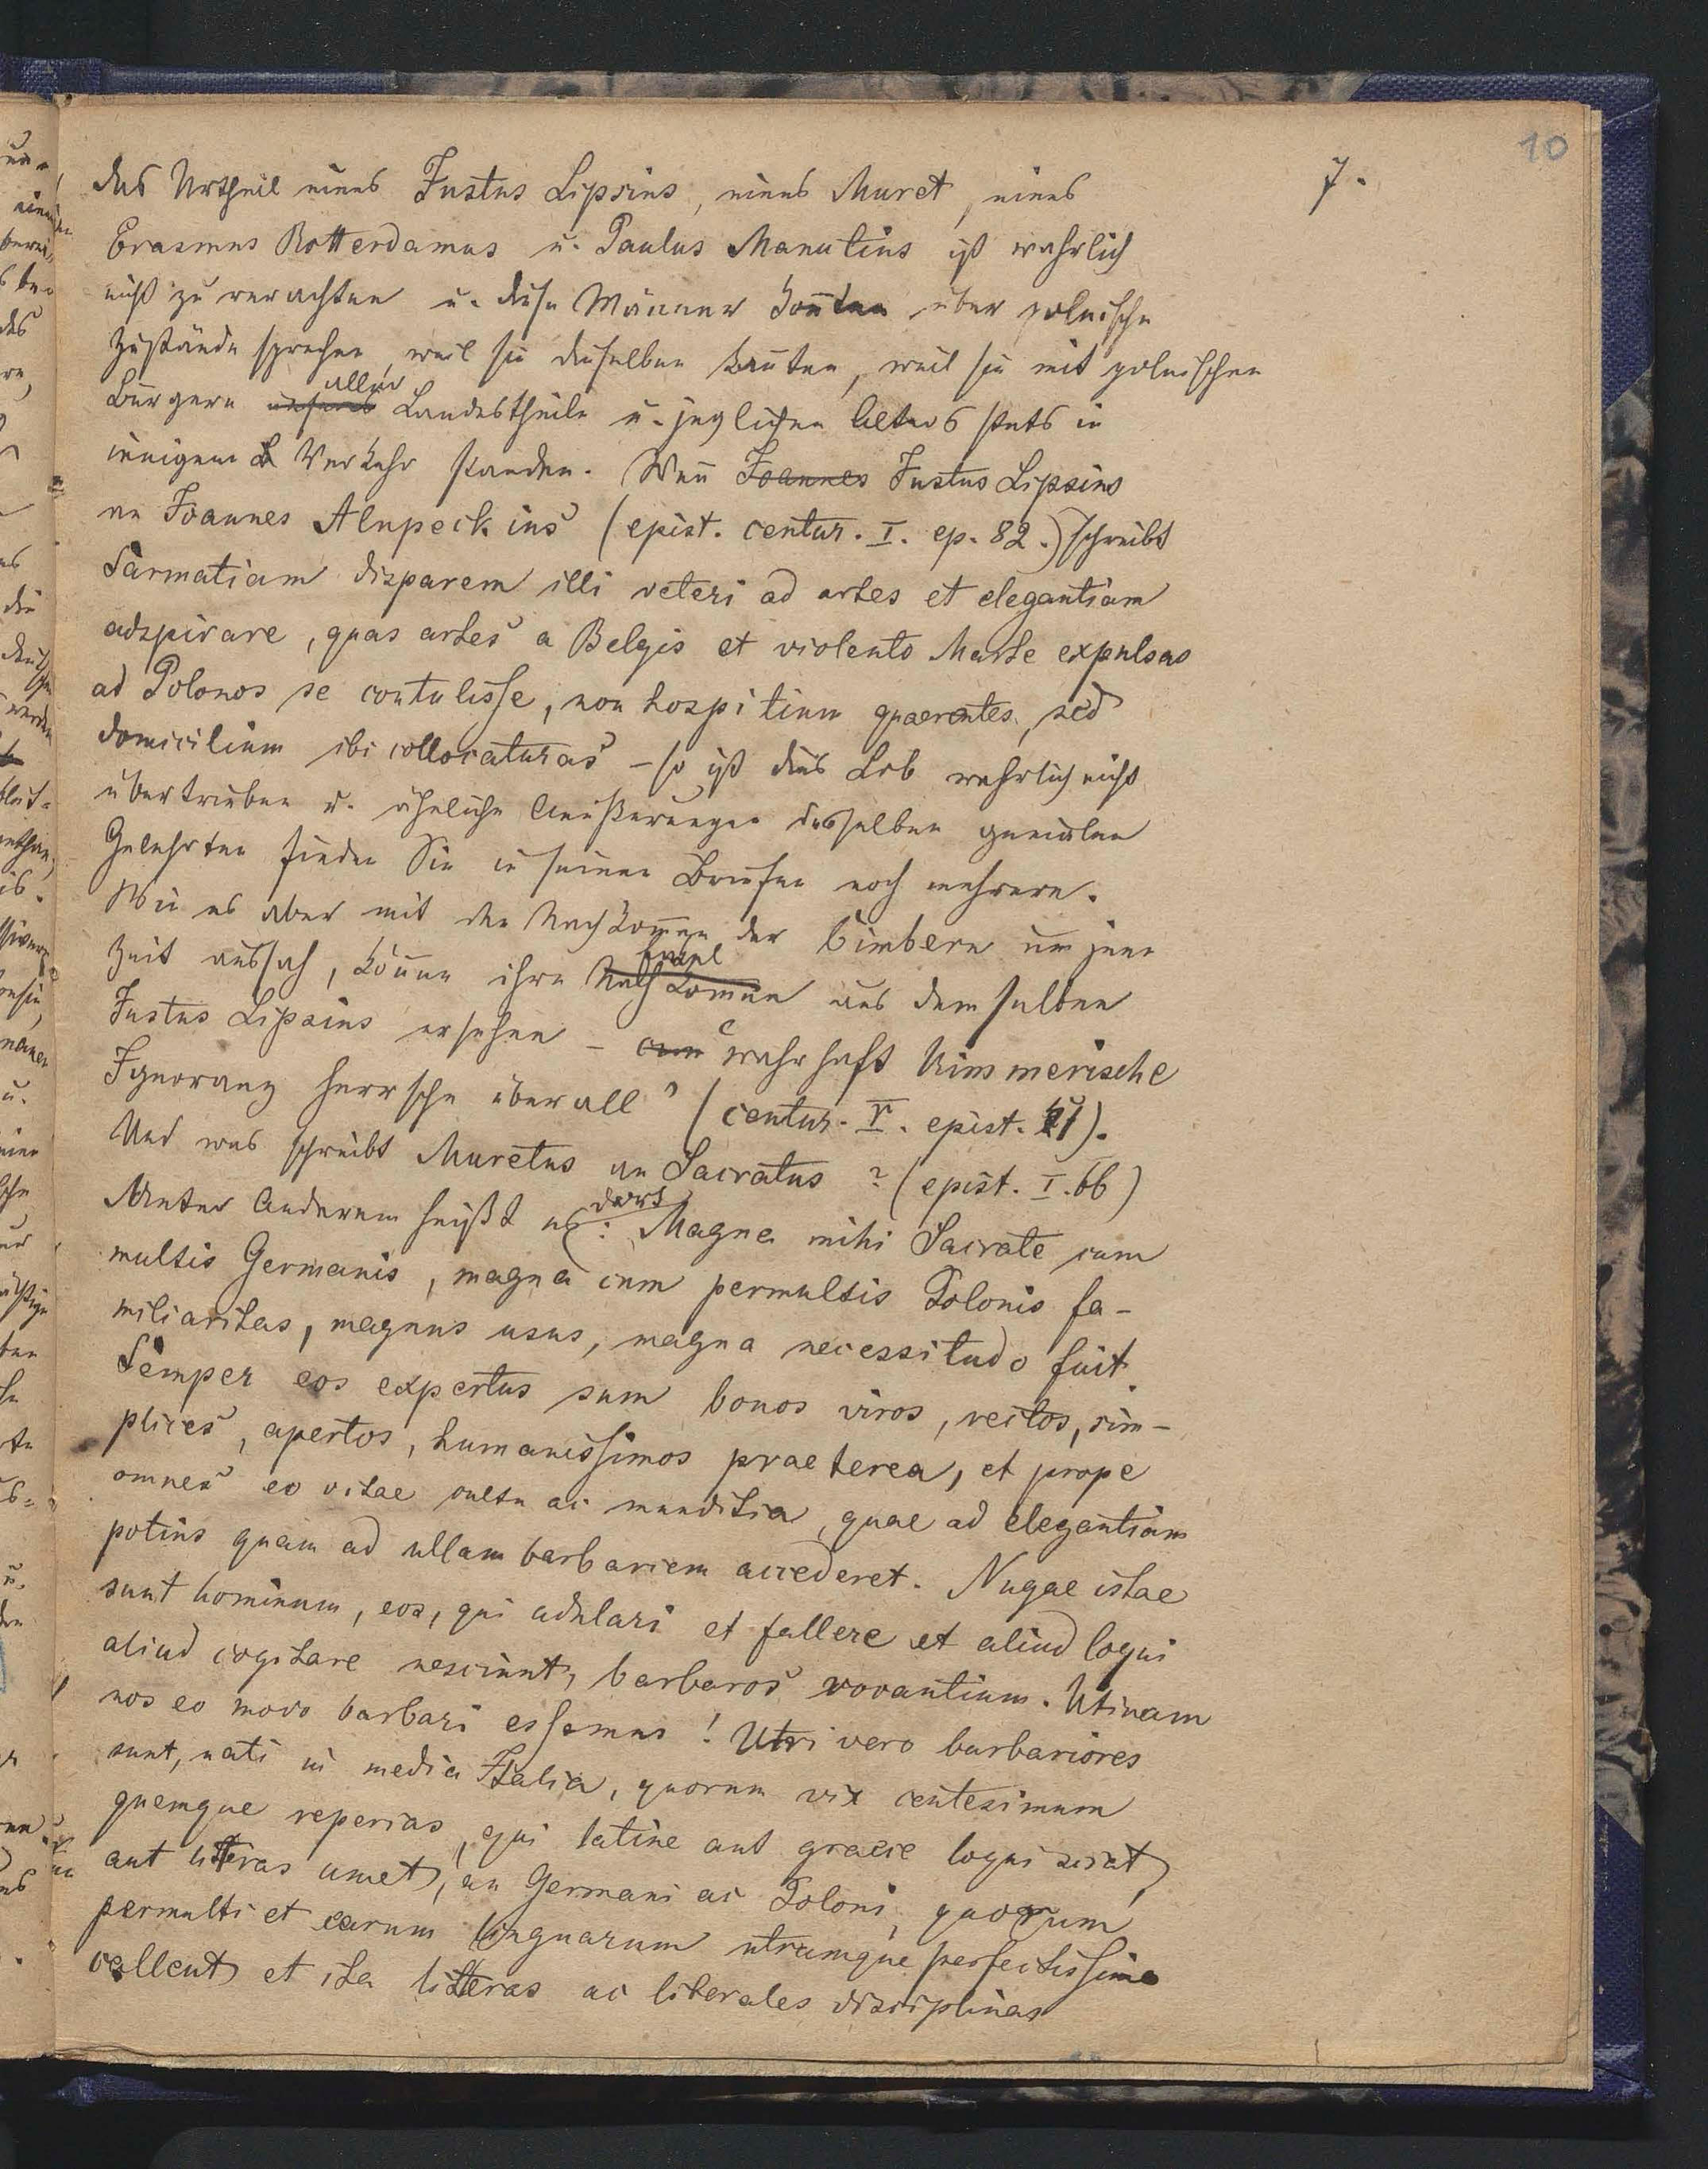 10
7.
das Urtheil eines Justus Lipsius, eines Muret, eines
Erasmus Rotterdamus u. Paulus Manutius ist wahrlich
nicht zu verachten u. diese Männer konnten über polnische
Zustände sprechen, weil sie dieselben kannten, weil sie mit polnischen
Bürgern aller Landestheile u. jeglichen Alters stets in
innigem Verkehr standen. Wenn Joannes Justus Lipsius
an Joannes Alnpeckius (epist. centur. I. ep. 82.) schreibt
Sarmatiam disparem illi veteri ad artes et elegantiam
adspirare, quas artes a Belgis et violento Marte expulsas
ad Polonos se contulisse, non hospitium quaerentes, sed
domicilium ibi collocaturas – so ist dies Lob wahrlich nicht
übertrieben u. ähnliche Aeußerungen desselben genialen
Gelehrten finden Sie in seinen Briefen noch mehrere.
Wie es aber mit den Nachkommen der Cimbern um jene
Zeit aussah, können ihre Enkel Nachkommen aus demselben
Justus Lipsius ersehen – wahrhaft Kimmerische
Ignoranz herrsche überall" (centur. V. epist.
Und was schreibt Muretus an Sacratus? (epist. I. 66)
Unter Anderem heißt es dort: Magna mihi Sacrate cum
multis Germanis, magna cum permultis Polonis fa-
miliaritas, magnus usus, magna necessitudo fuit.
Semper eos expertus sum bonos viros, rectos, sim-
plices, apertos, humanissimos praeterea, et prope
omnes eo vitae cultu ac munditia, quae ad elegantiam
potius quam ad ullam barbariem accederet. Nugae istae
sunt hominum, eos, qui adulari et fallere et aliud loqui
aliud cogitare nesciunt, barbaros vocantium. Utinam
nos eo modo barbari essemus! Utri vero barbariores
sunt, nati in media Italia, quorum vix centesimum
quemque reperias, qui latine aut graece loqui sciat,
aut litteras amet, an Germani ac Poloni, quorum
permulti et earum linguarum utramque perfectissime
callent et ita litteras ac liberales disciplinas